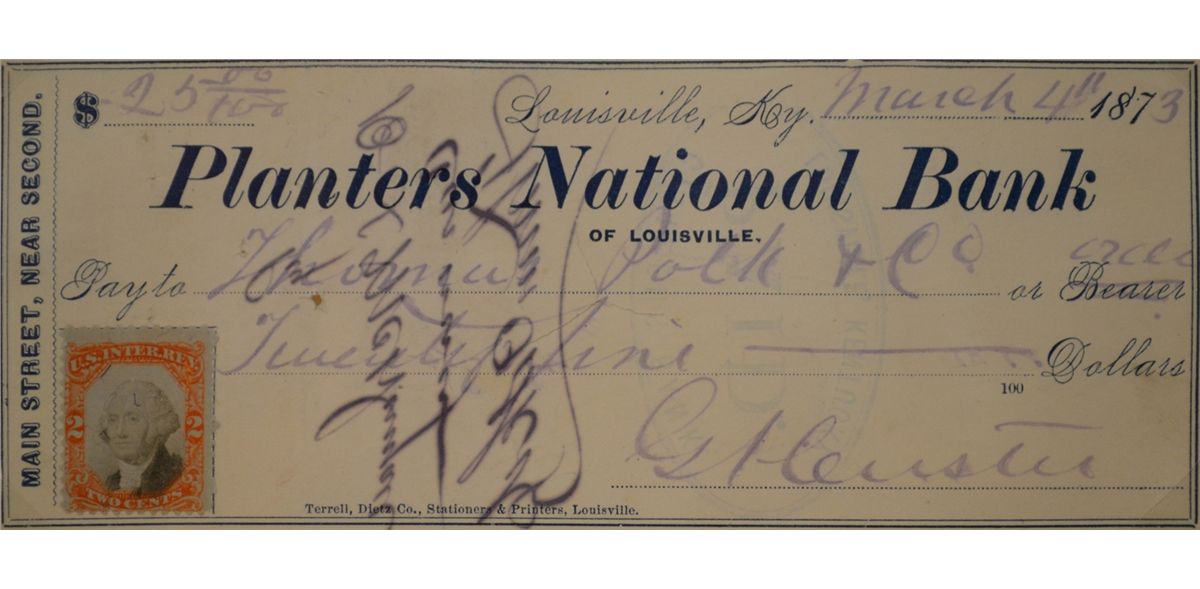 MAIN STREET, NEAR SECOND.
$ 25 00/100
Louisville, Ky. March 4th 1873
Planters National Bank
OF LOUISVILLE.
Pay to Thomas Polk & Co or Bearer
Twenty five Dollars
100
GACuster
U.S. INTER. REV.
2 2
TWO CENTS
Terrell, Dietz Co., Stationers & Printers, Louisville.